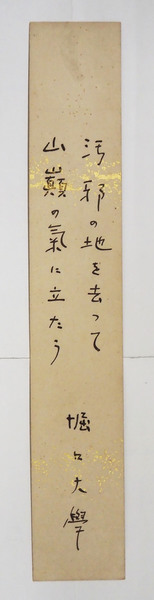 汚邪の地を去って
山巓の氣に立たう
堀口大學